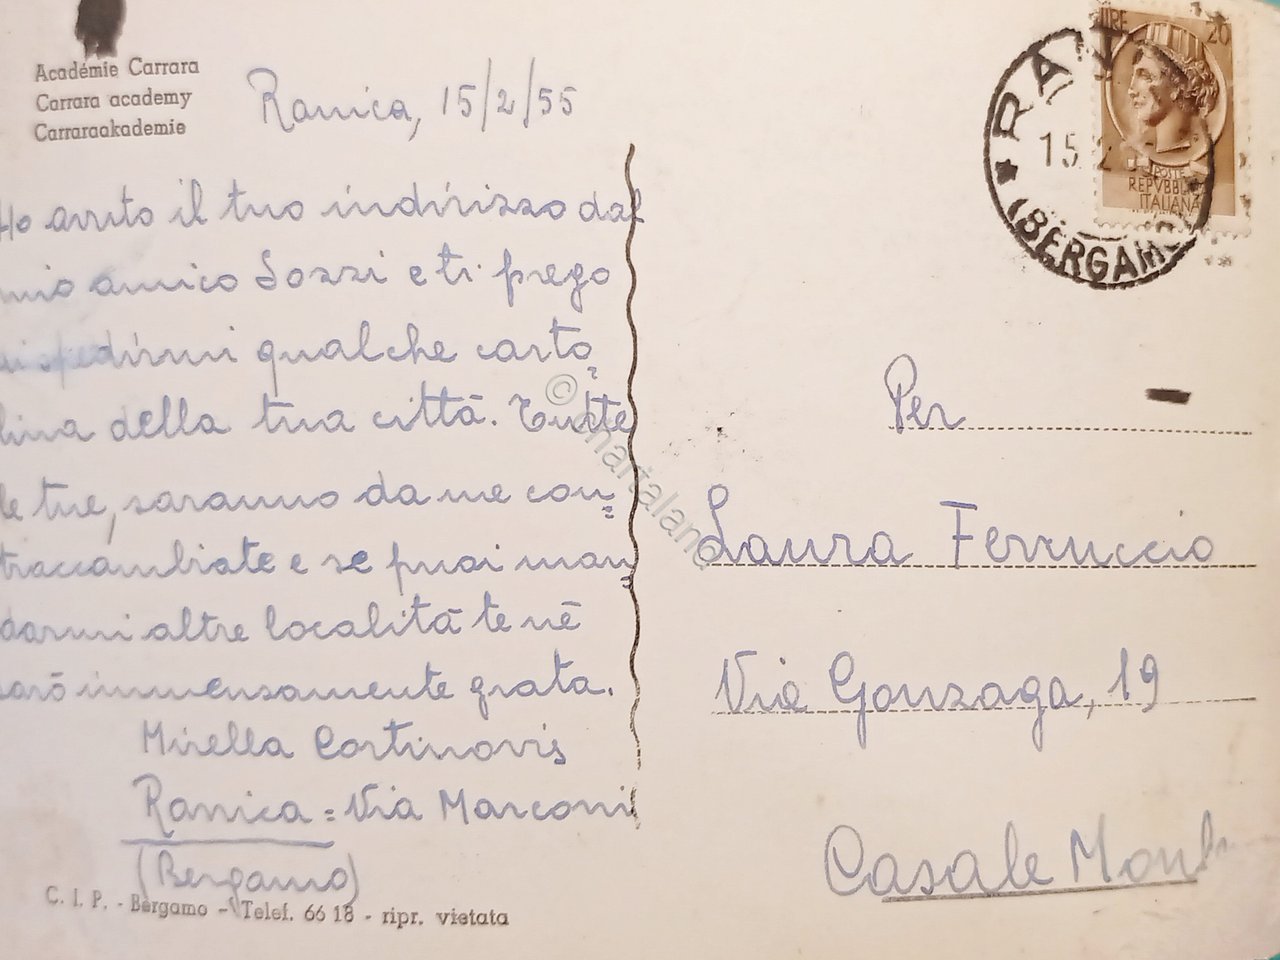 Académie Carrara
Carrara academy
Carraraakademie
Ranica, 15/2/55
Ho avuto il tuo indirizzo dal
mio amico Sozzi e ti prego
di spedirmi qualche carto=
lina della tua città. Tutte
le tue, saranno da me con=
traccambiate e se puoi man=
darmi altre località te nē
sarò immensamente grata.
Mirella Cortinovis
Ranica = Via Marconi
(Bergamo)
C. I. P. - Bergamo - Telef. 66 18 - ripr. vietata
LIRE 20
POSTE
REPVBBLICA
ITALIANA
15 2
(BERGAMO
Per
Laura Ferruccio
Via Gonzaga, 19
Casale Monf
© chartaland